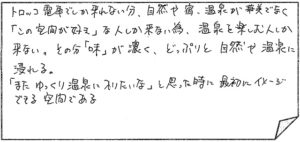 トロッコ電車でしか来れない分、自然や宿、温泉が華美でなく
「この空間がみえて」な人しか来ない為、温泉を楽しむ人しか
来ない。その分「味」が濃く、どっぷりと自然や温泉に
浸れる。
「またゆっくり温泉に入りたいな」と思った時に最初にイメージ
できる空間である